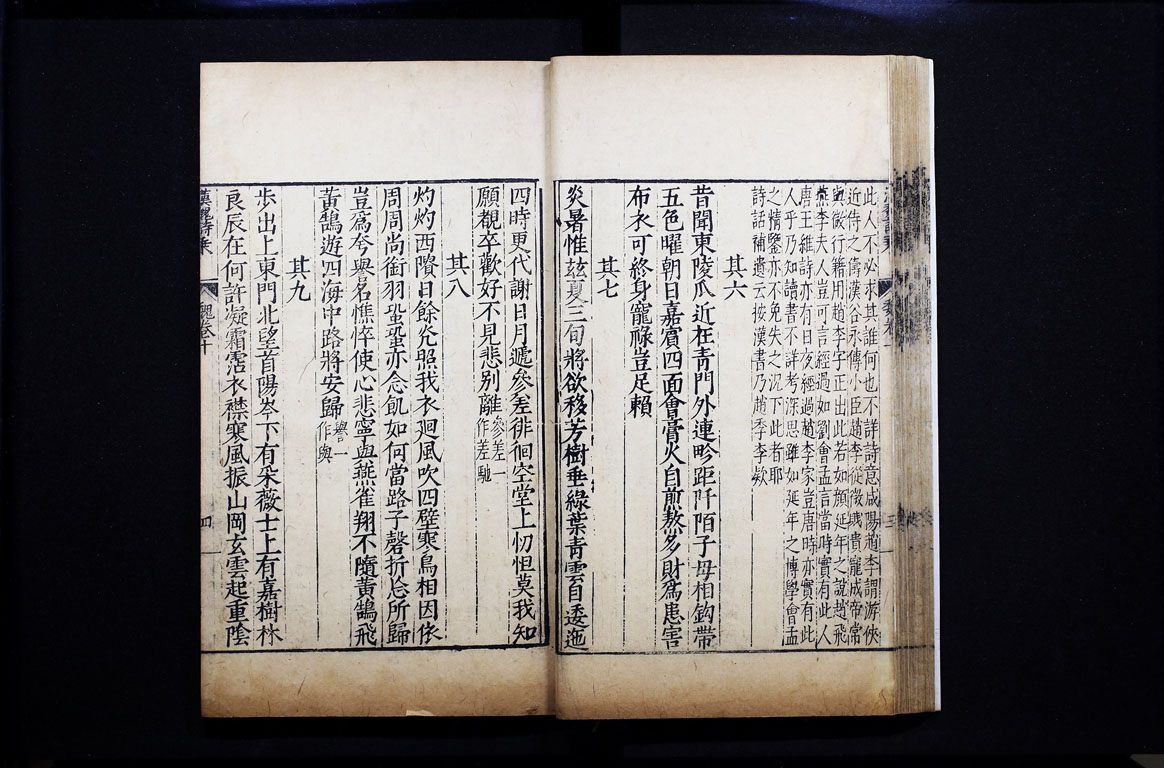 此人不必求其誰何也不詳詩意咸陽趙李謂游俠
近侍之儔漢谷永傳小臣趙李從微賤貴寵成帝常
與微行籍用趙李字正出此若如顔延年之說趙飛
燕李夫人豈可言經過如劉會孟言當時實有此人
唐王維詩亦有日夜經過趙李家豈唐時亦實有此
人乎乃知讀書不詳考深思雖如延年之博學會孟
之精鑒亦不免失之況下此者耶
詩話補遺云按漢書乃趙季李欵
其六
昔聞東陵瓜近在青門外連畛距阡陌子母相鈎帶
五色曜朝日嘉賓四面會膏火自煎熬多財爲患害
布衣可終身寵祿豈足賴
其七
炎暑惟玆夏三旬將欲移芳樹垂綠葉青雲自逶迤
四時更代謝日月遞參差徘徊空堂上忉怛莫我知
願覩卒歡好不見悲别離參差一作差馳
其八
灼灼西隤日餘光照我衣廻風吹四壁寒鳥相因依
周周尚銜羽蛩蛩亦念飢如何當路子磬折忘所歸
豈爲夸與名憔悴使心悲寧與燕雀翔不隨黃鵠飛
黃鵠遊四海中路將安歸譽一作與
其九
步出上東門北望首陽岑下有采薇士上有嘉樹林
良辰在何許凝霜霑衣襟寒風振山岡玄雲起重陰
漢魏詩乘
魏卷十
四